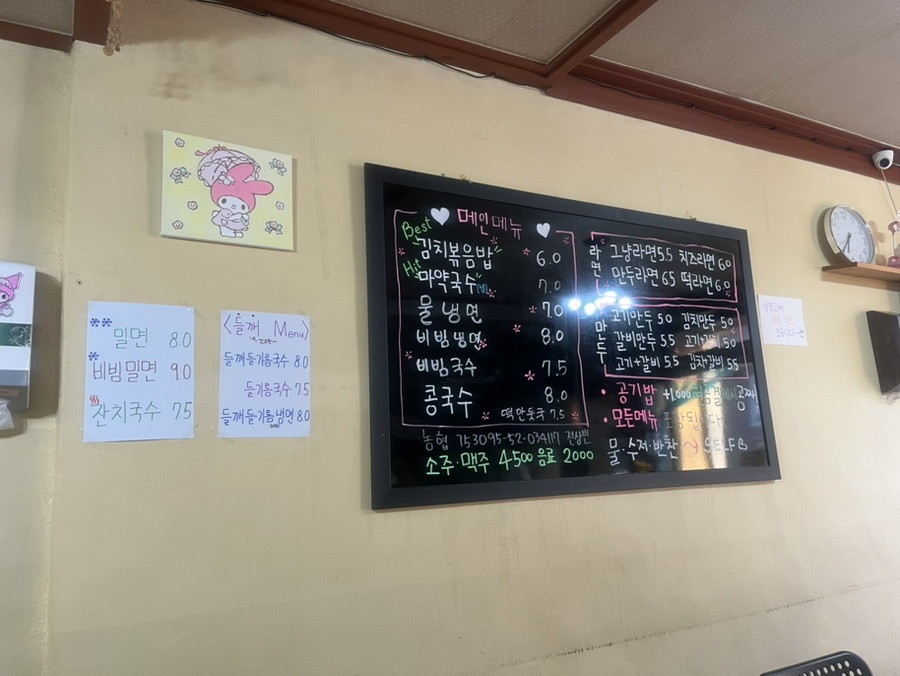 ** 밀면 8.0
* 비빔밀면 9.0
잔치국수 7.5
<들깨 Menu>
들깨들기름국수 8.0
들기름국수 7.5
들깨들기름냉면 8.0
Best 메인메뉴
김치볶음밥 6.0
Hit 마약국수 7.0
물냉면 7.0
비빔냉면 8.0
비빔국수 7.5
콩국수 8.0
떡만둣국 7.5
농협 753095-52-034117
소주·맥주 4500 음료 2000
라면
그냥라면 5.5 치즈라면 6.0
만두라면 6.5 떡라면 6.0
만두
고기만두 5.0 김치만두 5.0
갈비만두 5.5 고기+김치 5.0
고기+갈비 5.5 김치+갈비 5.5
• 공기밥 +1.000
• 모든메뉴 포장됩니다
물·수저·반찬 → SELF